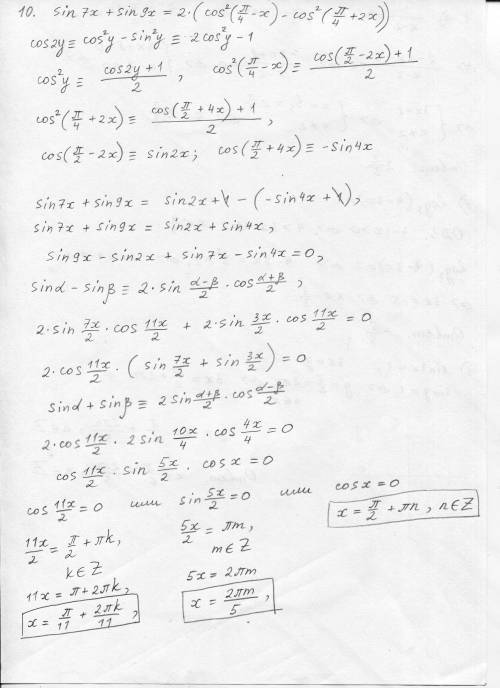 10. sin7x + sin9x = 2·(cos²(π/4 − x) − cos²(π/4 + 2x))
cos2y ≡ cos²y − sin²y ≡ 2cos²y − 1
cos²y ≡ (cos2y + 1)/2 , cos²(π/4 − x) ≡ (cos(π/2 − 2x) + 1)/2
cos²(π/4 + 2x) ≡ (cos(π/2 + 4x) + 1)/2 ,
cos(π/2 − 2x) ≡ sin2x; cos(π/2 + 4x) ≡ −sin4x
sin7x + sin9x = sin2x + 1 − (−sin4x + 1),
sin7x + sin9x = sin2x + sin4x,
sin9x − sin2x + sin7x − sin4x = 0,
sinα − sinβ ≡ 2·sin (α−β)/2 · cos (α+β)/2 ,
2·sin 7x/2 · cos 11x/2 + 2·sin 3x/2 · cos 11x/2 = 0
2·cos 11x/2 · (sin 7x/2 + sin 3x/2) = 0
sinα + sinβ ≡ 2sin (α+β)/2 · cos (α−β)/2
2·cos 11x/2 · 2sin 10x/4 · cos 4x/4 = 0
cos 11x/2 · sin 5x/2 · cosx = 0
cos 11x/2 = 0 или sin 5x/2 = 0 или cosx = 0
11x/2 = π/2 + πk, 5x/2 = πm, x = π/2 + πn, n∈Z
k∈Z m∈Z
11x = π + 2πk, 5x = 2πm
x = π/11 + 2πk/11 , x = 2πm/5 ,